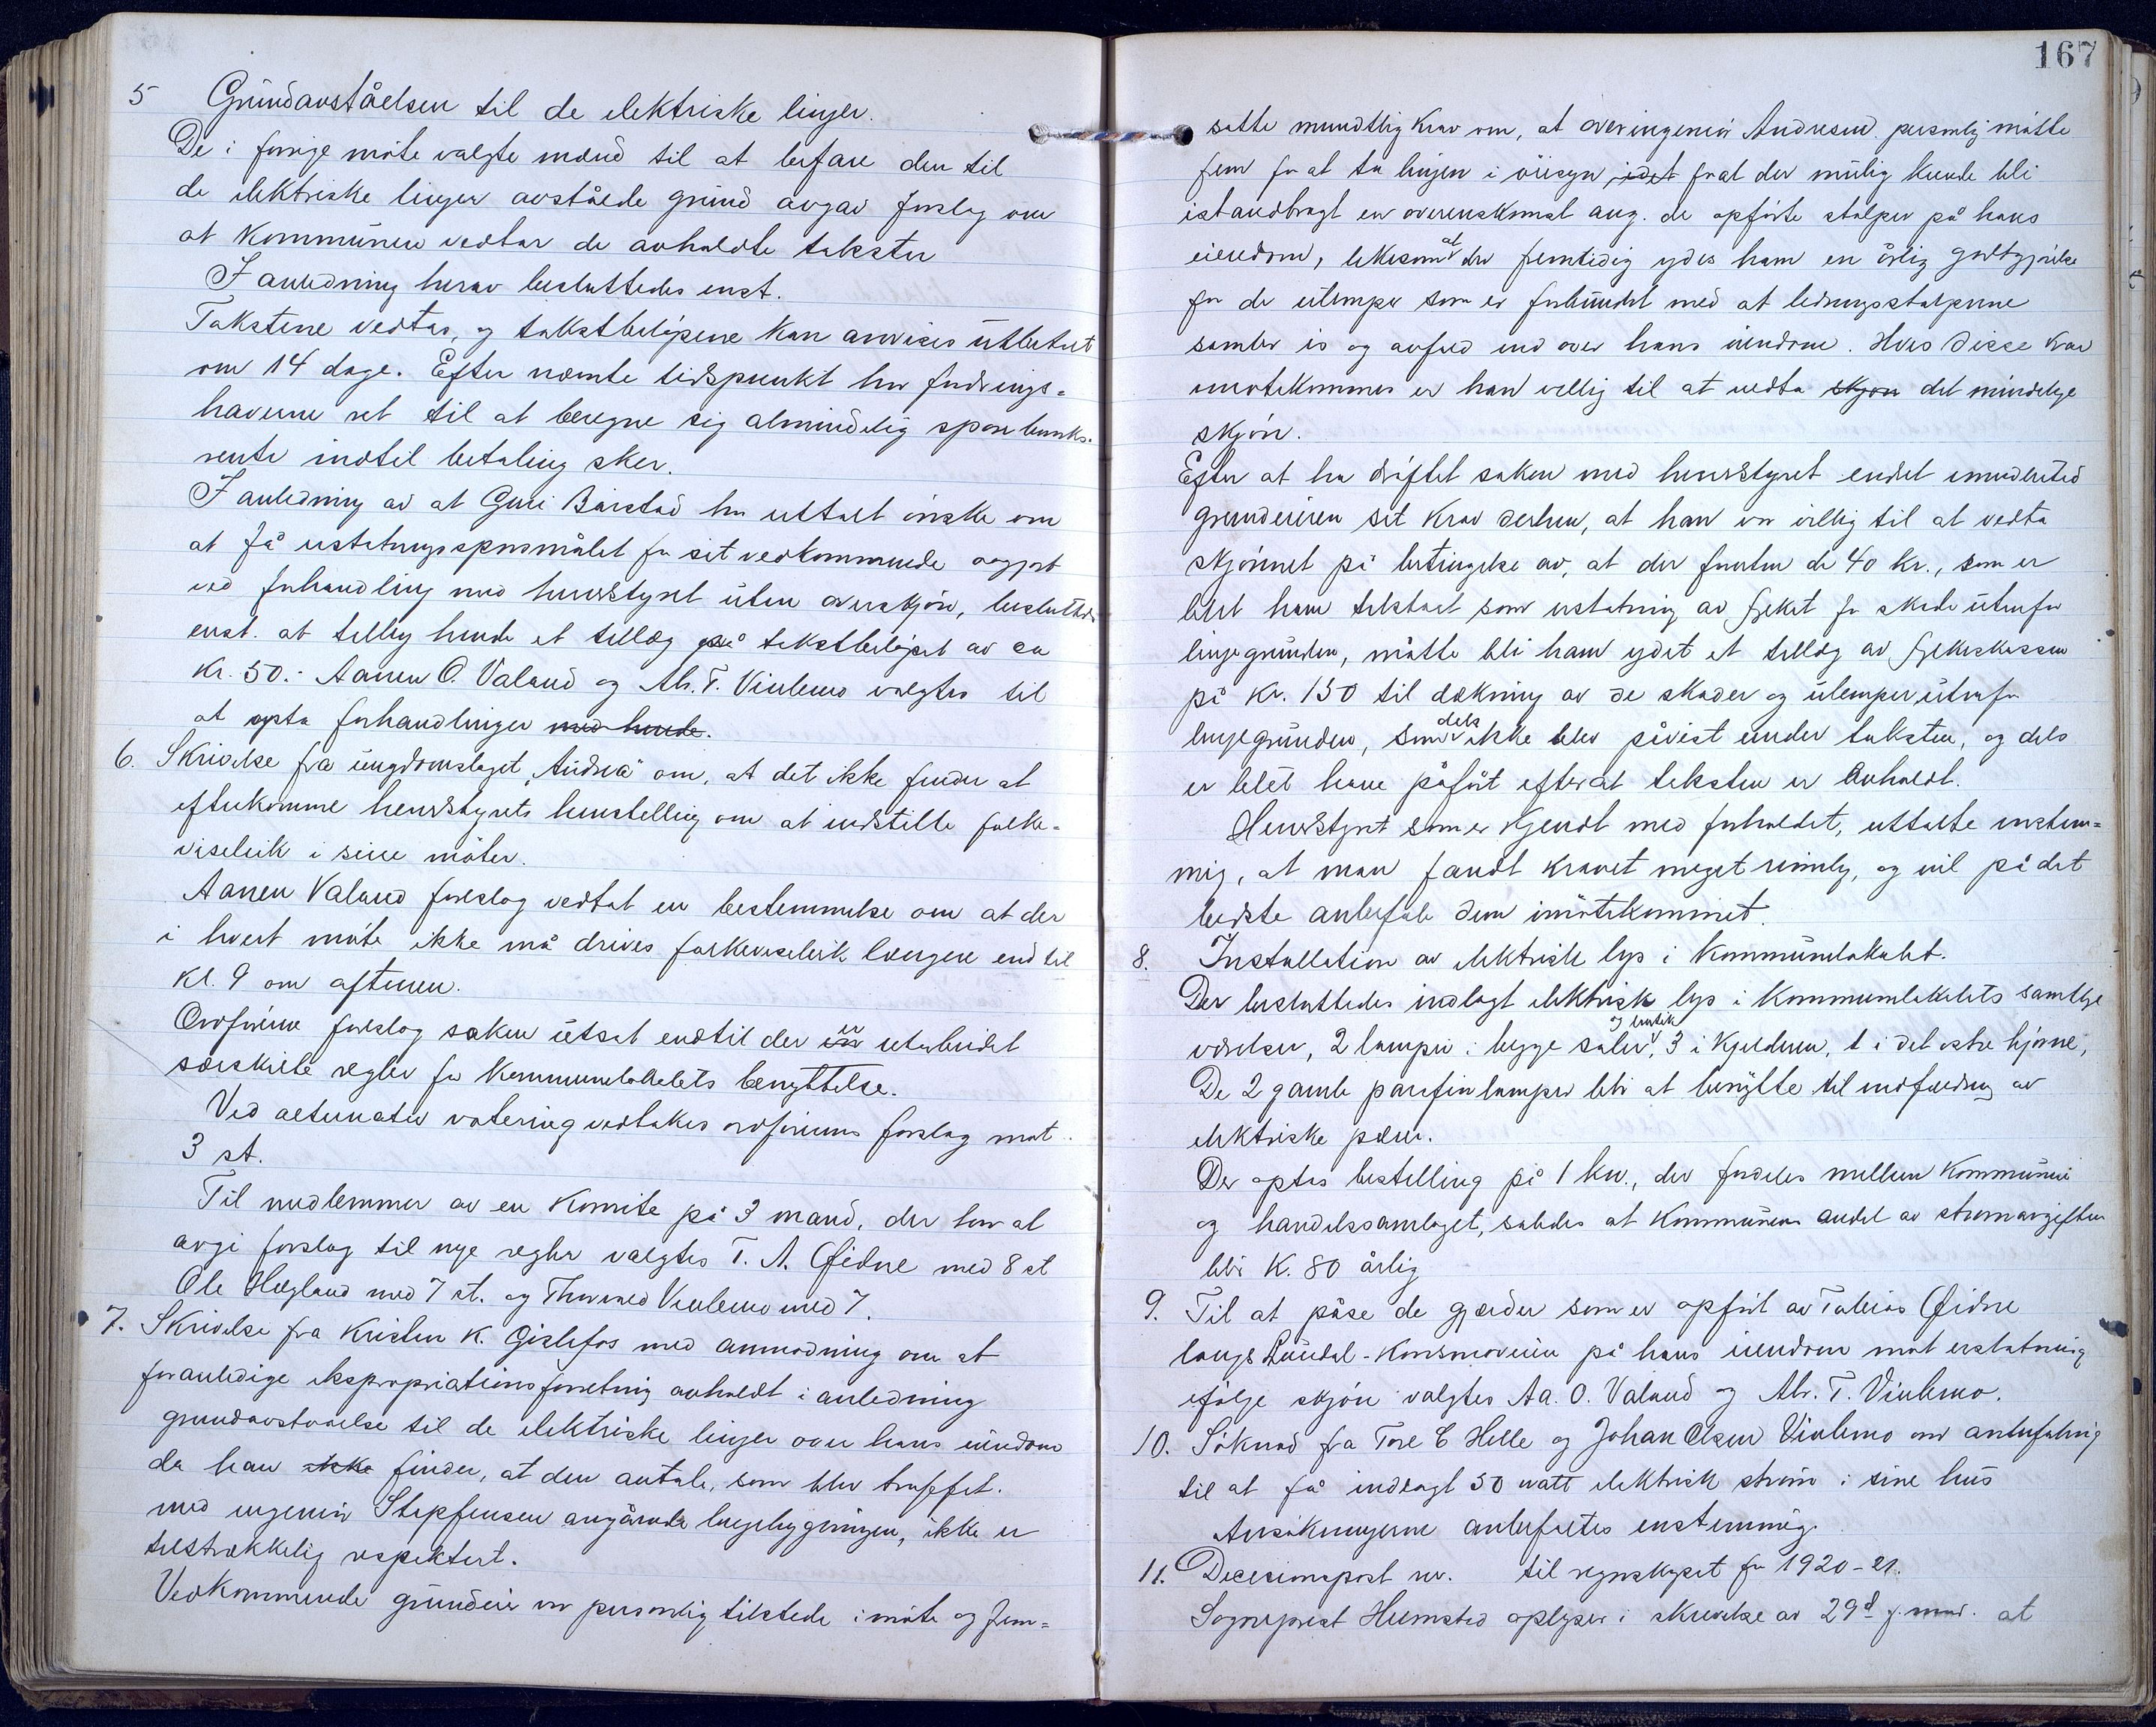 5 Grundavståelsen til de elektriske linjer.
De i forrige møte valgte mænd til at befare den til
de elektriske linjer avståede grund avgav forslag om
at kommunen vedtar de avholdte takster
I anledning herav besluttedes enst.
Takstene vedtas, og takstbeløpene kan anvises utbetalt
om 14 dage. Efter nævnte tidspunkt har fordrings-
haverne ret til at beregne sig almindelig sparebanks-
rente indtil betaling sker.
I anledning av at Guri Bårstad har uttalt ønske om
at få erstatningsspørsmålet for sit vedkommende avgjort
ved forhandling med herredstyret uten overskjøn, besluttedes
enst. at tillegg hende et tillæg på takstbeløpet av ca
kr. 50.- Aanen O. Valand og Alr. T. Vinlemo valgtes til
at opta forhandlinger med hende.
6. Skrivelse fra ungdomslaget "Audna" om, at det ikke finder at
efterkomme herredstyrets henstilling om at indstille folke-
viseleik i sine møter.
Aanen Valand foreslog vedtat en bestemmelse om at der
i hvert møte ikke må drives folkeviseleik længere end til
kl. 9 om aftenen.
Ordføreren foreslog saken utsat indtil der er utarbeidet
særskilte regler for kommunelokalets benyttelse.
Ved alternativ votering vedtakes ordførerens forslag mot
3 st.
Til medlemmer av en komite på 3 mand, der har at
avgi forslag til nye regler valgtes T. A. Øidne med 8 st
Ole Høgland med 7 st. og Thormod Vinlemo med 7.
7. Skrivelse fra Kristen K. Gislefos med anmodning om at
foranledige ekspropriationsforretning avholdt i anledning
grundavståelse til de elektriske linjer over hans eiendom
da han ikke finder, at den avtale, som blev truffet.
med ingeniør Stepfensen angående linjebygningen, ikke er
tilstrækkelig respektert.
Vedkommende grundeier var personlig tilstede i møte og frem-
167
satte mundtlig krav om, at overingeniør Andresen personlig måtte
frem for at ta linjen i øiesyn, idet for at der mulig kunde bli
istandbragt en overenskomst ang. de opførte stolper på hans
eiendom, likesom at der fremtidig ydes ham en årlig godtgjørelse
for de ulemper som er forbundet med at ledningsstolperne
samler is og avfald ind over hans eiendom. Hvis disse krav
imøtekommes er han villig til at vedta skjøn det mindelige
skjøn.
Efter at ha drøftet saken med herredstyret endret imidlertid
grundeieren sit krav derhen, at han var villig til at vedta
skjønnet på betingelse av, at der foruten de 40 kr., som er
blit ham tilstaat som erstatning av fylket for skade utenfor
linjegrunden, måtte bli ham ydet et tillæg av fylkeskassen
på kr. 150 til dækning av de skader og ulemper utenfor
linjegrunden, som dels ikke blev påvist under taksten, og dels
er blet ham påført efterat taksten er avholdt.
Herredstyret som er kjendt med forholdet, uttalte enstem-
mig, at man fandt kravet meget rimelig, og vil på det
bedste anbefale dem imøtekommet.
8. Installation av elektrisk lys i kommunelokalet.
Der besluttedes indlagt elektrisk lys i kommunelokalets samtlige
værelser, 2 lamper i begge saler, og butik 3 i kjelderen, 1 i det østre hjørne,
De 2 gamle parafinlamper blir at benytte til indfatning av
elektriske pærer.
Der optas bestilling på 1 kw., der fordeles mellem kommunen
og handelssamlaget, således at kommunens andel av strømavgiften
blir K. 80 årlig
9. Til at påse de gjærder som er opført av Tobias Øidne
langs Lundal-Konsmoveien på hans eiendom mot erstatning
ifølge skjøn valgtes Aa. O. Valand og Alr. T. Vinlemo.
10. Søknad fra Tore E Helle og Johan Olsen Vinlemo om anbefaling
til at få indlagt 50 watt elektrisk strøm i sine hus
Ansøkningerne anbefaltes enstemmig.
11. Decisionspost nr. til regnskapet for 1920-21.
Sogneprest Heemsted oplyser i skrivelse av 29d f. mnd. at